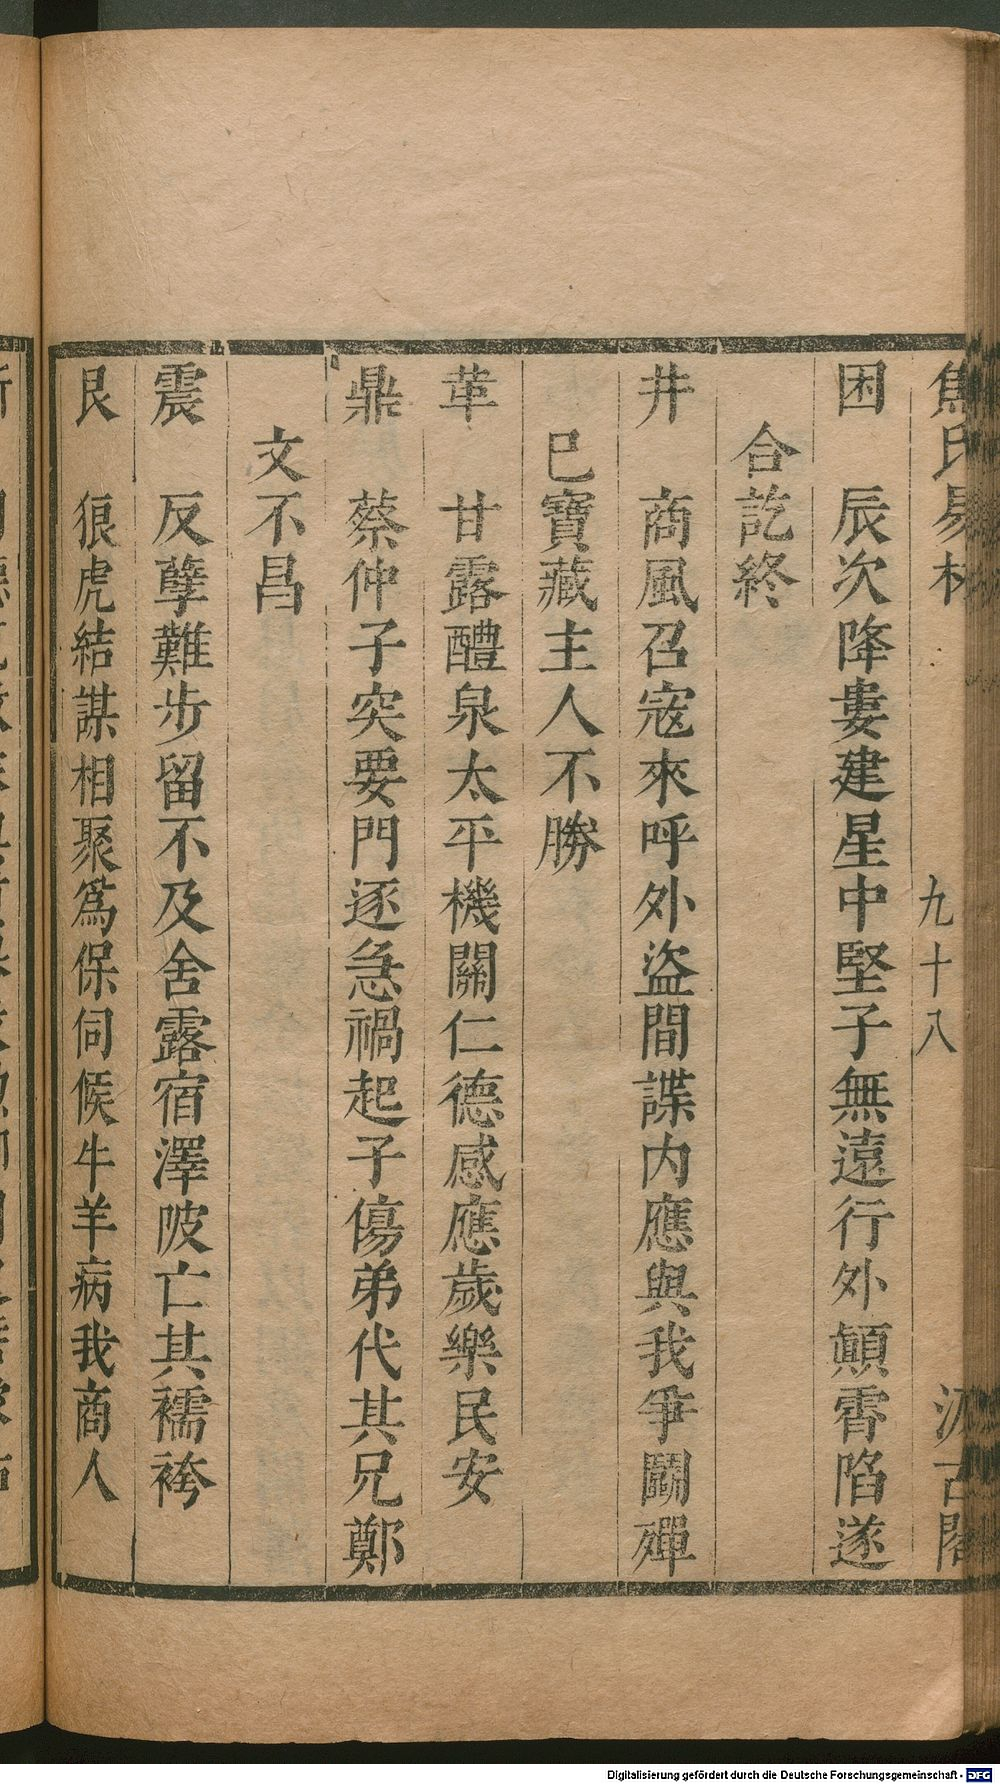 焦氏易林 九十八 汲古閣
困 辰次降婁建星中堅子無遠行外顛霄陷遂
合訖終
井 商風召寇來呼外盜間諜内應與我爭鬭殫
已寶藏主人不勝
革 甘露醴泉太平機關仁德感應歲樂民安
鼎 蔡仲子突要門逐急禍起子傷弟代其兄鄭
文不昌
震 反孽難步留不及舍露宿澤陂亡其襦袴
艮 狼虎結謀相聚爲保伺候牛羊病我商人
Digitalisierung gefördert durch die Deutsche Forschungsgemeinschaft - DFG